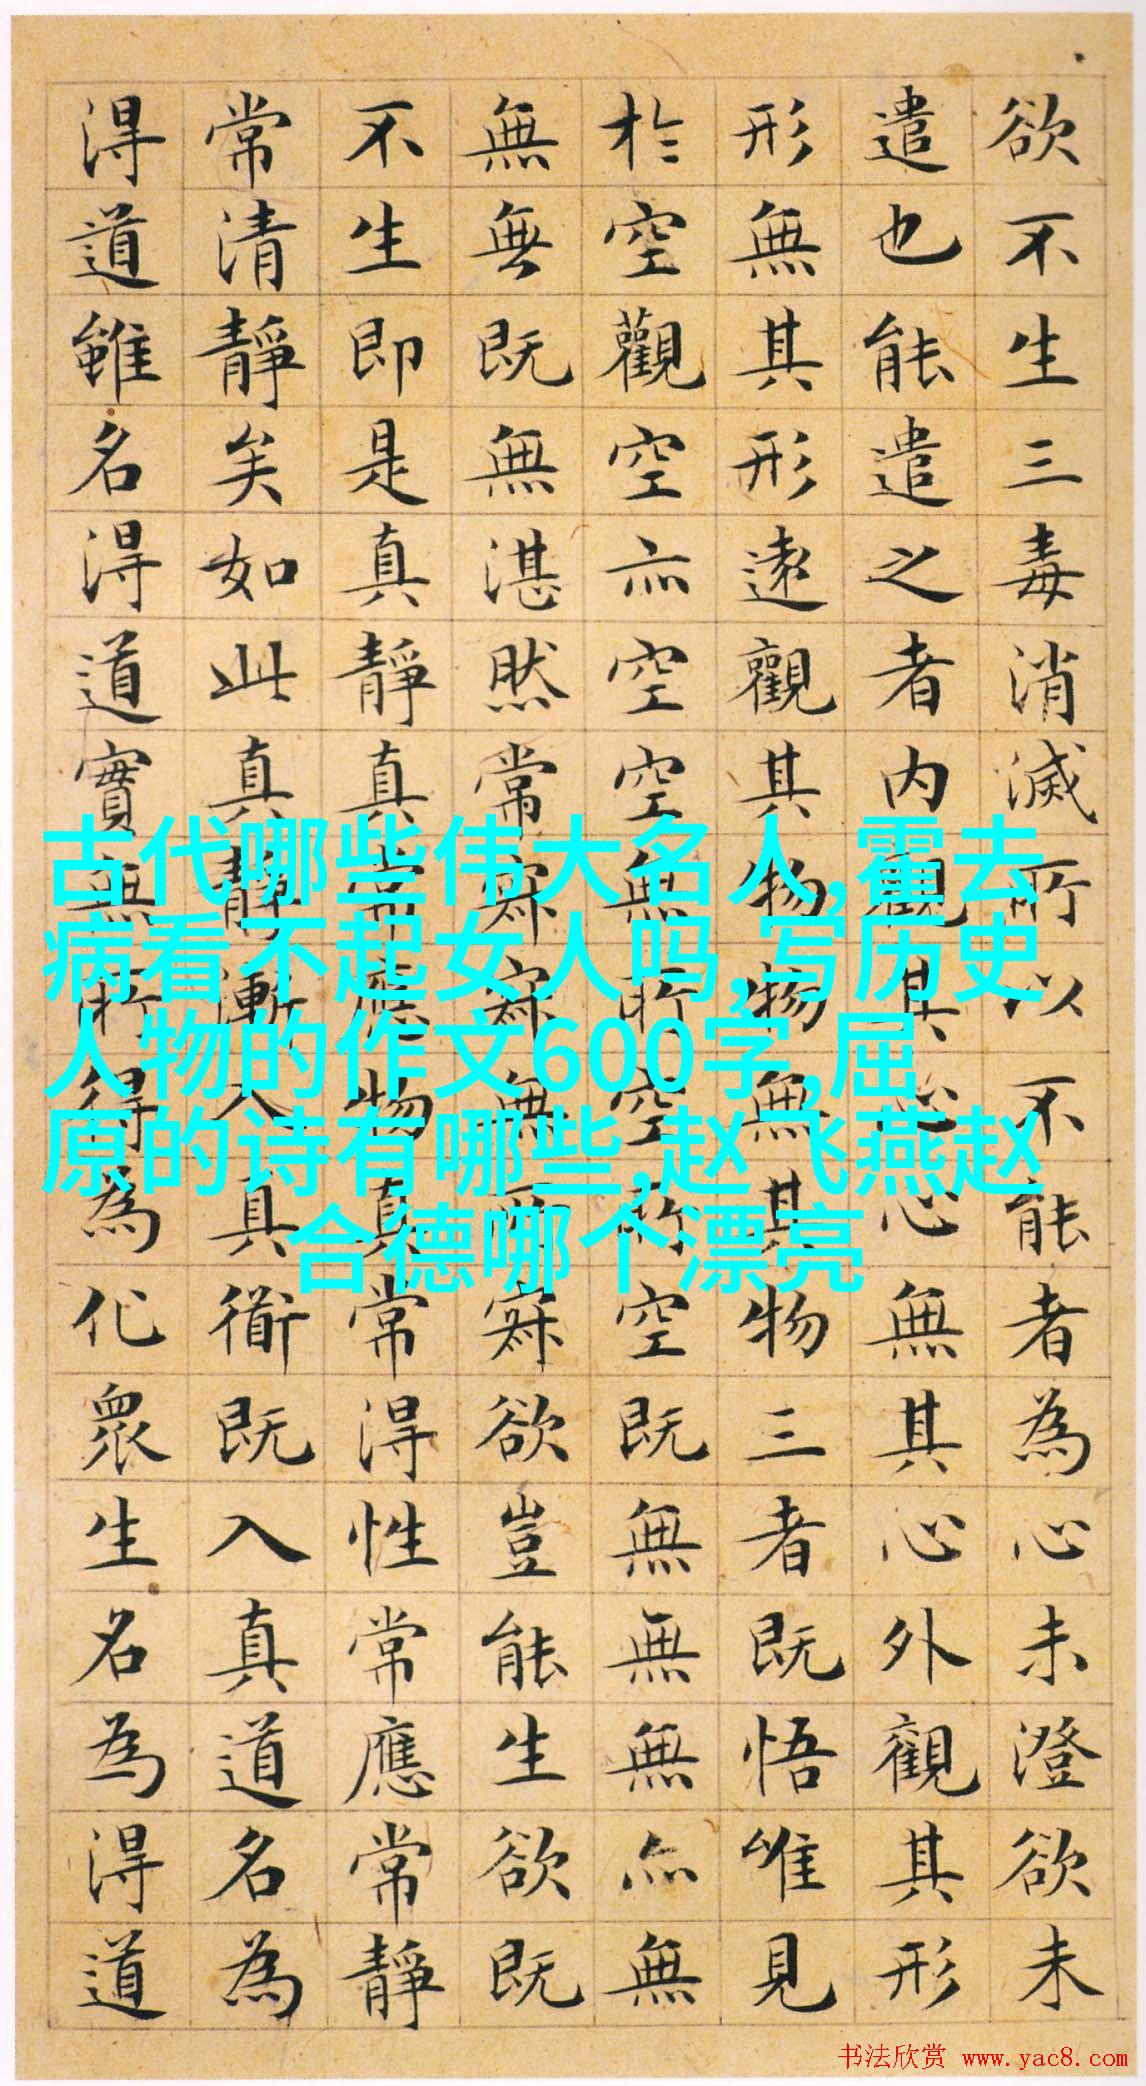 欲不生三毒消滅所以不能者為心未澄欲未
遣也能遣之者内觀其心心無其心外觀其形
形無其形遠觀其物物無其物三者既悟唯見
於空觀空亦空空無所空所空既無無無亦無
無無既無湛然常寂寂無所寂欲豈能生欲既
不生即是真靜真常應物真常得性常應常靜
常清靜矣如此真靜漸入真衜既入真道名為
得道雖名得道實無所得為化眾生名為得道
古代哪些伟大名人,霍去
病看不起女人吗,写历史
人物的作文600字,屈
原的诗有哪些,赵飞燕赵
合德哪个漂亮
书法欣赏 www.yac8.com